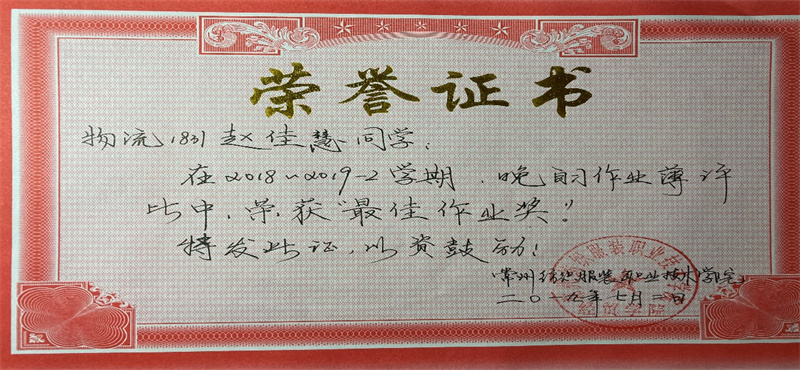 荣誉证书
物流1831赵佳慧同学:
在2018~2019-2学期,晚自习作业薄评
比中,荣获"最佳作业奖"!
特发此证,以资鼓励!
常州纺织服装职业技术学院
二〇一九年七月二日